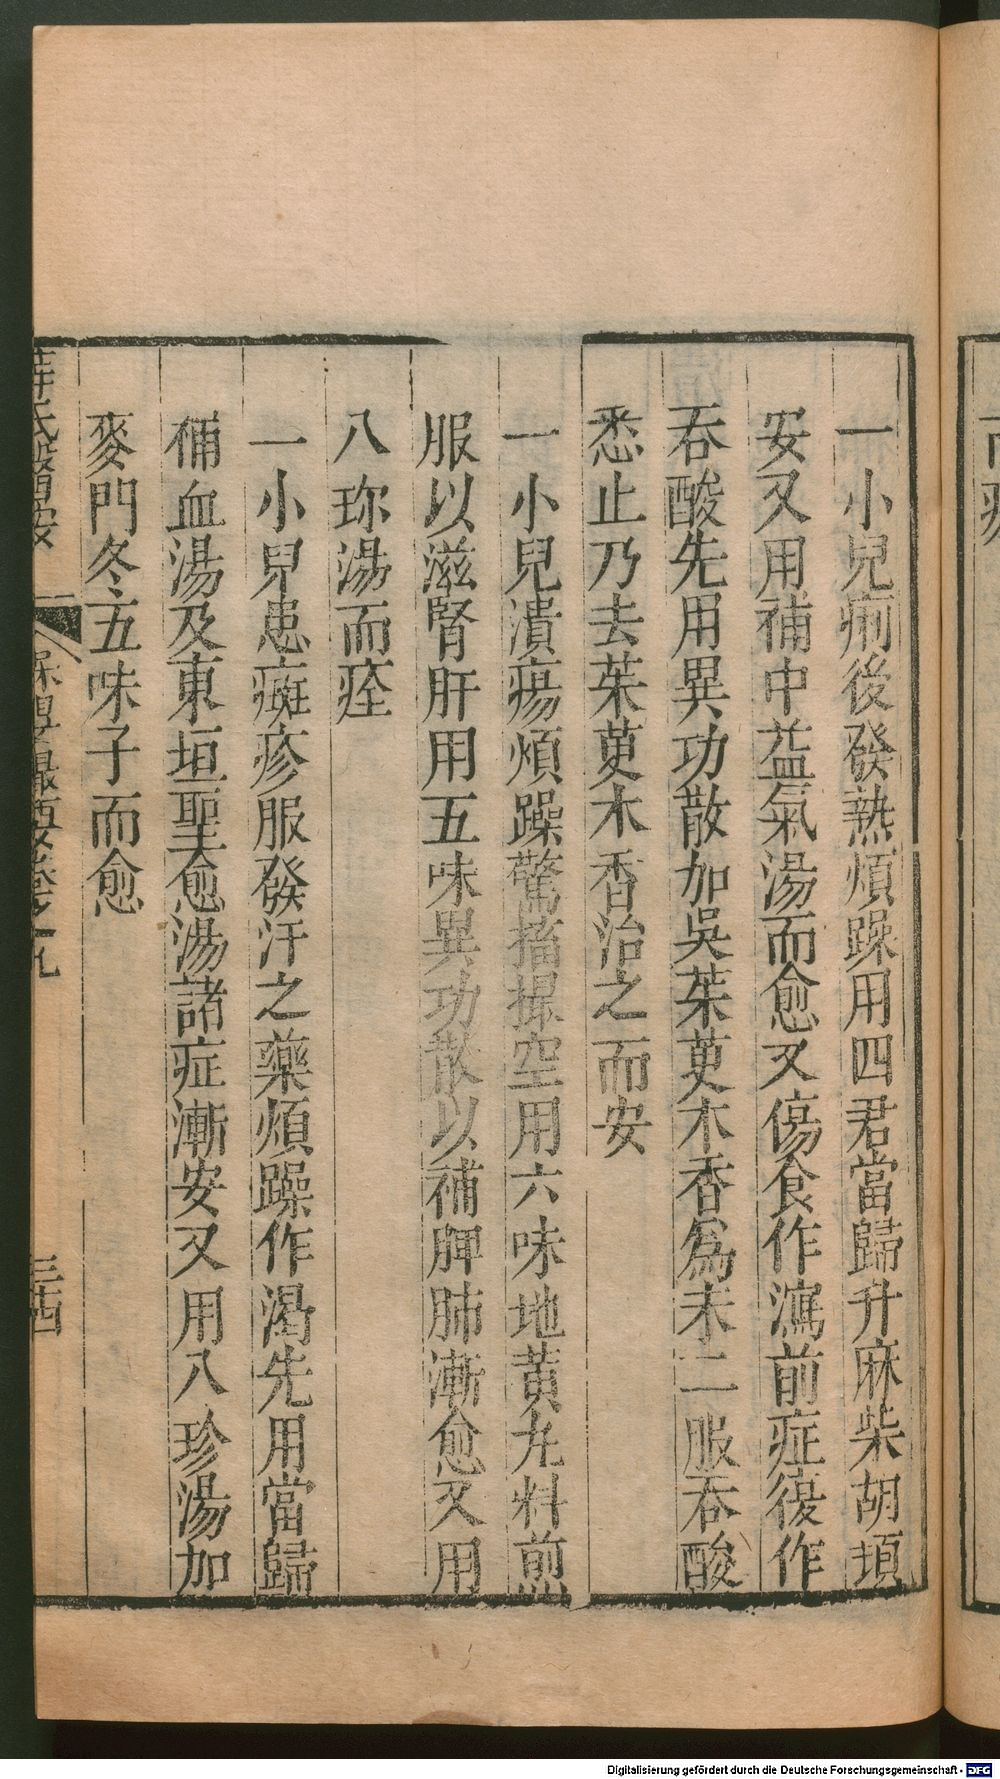 一小兒痢後發熱煩躁用四君當歸升麻柴胡頓
安又用補中益氣湯而愈又傷食作瀉前症復作
吞酸先用異功散加吳茱萸木香爲末二服吞酸
悉止乃去茱萸木香治之而安
一小兒潰瘍煩躁驚搐撮空用六味地黄丸料煎
服以滋腎肝用五味異功散以補脾肺漸愈又用
八珎湯而痊
一小兒患癍疹服發汗之藥煩躁作渴先用當歸
補血湯及東垣聖愈湯諸症漸安又用八珍湯加
麥門冬五味子而愈
薛氏醫按
保嬰撮要卷之十九
三十四
Digitalisierung gefördert durch die Deutsche Forschungsgemeinschaft - DFG